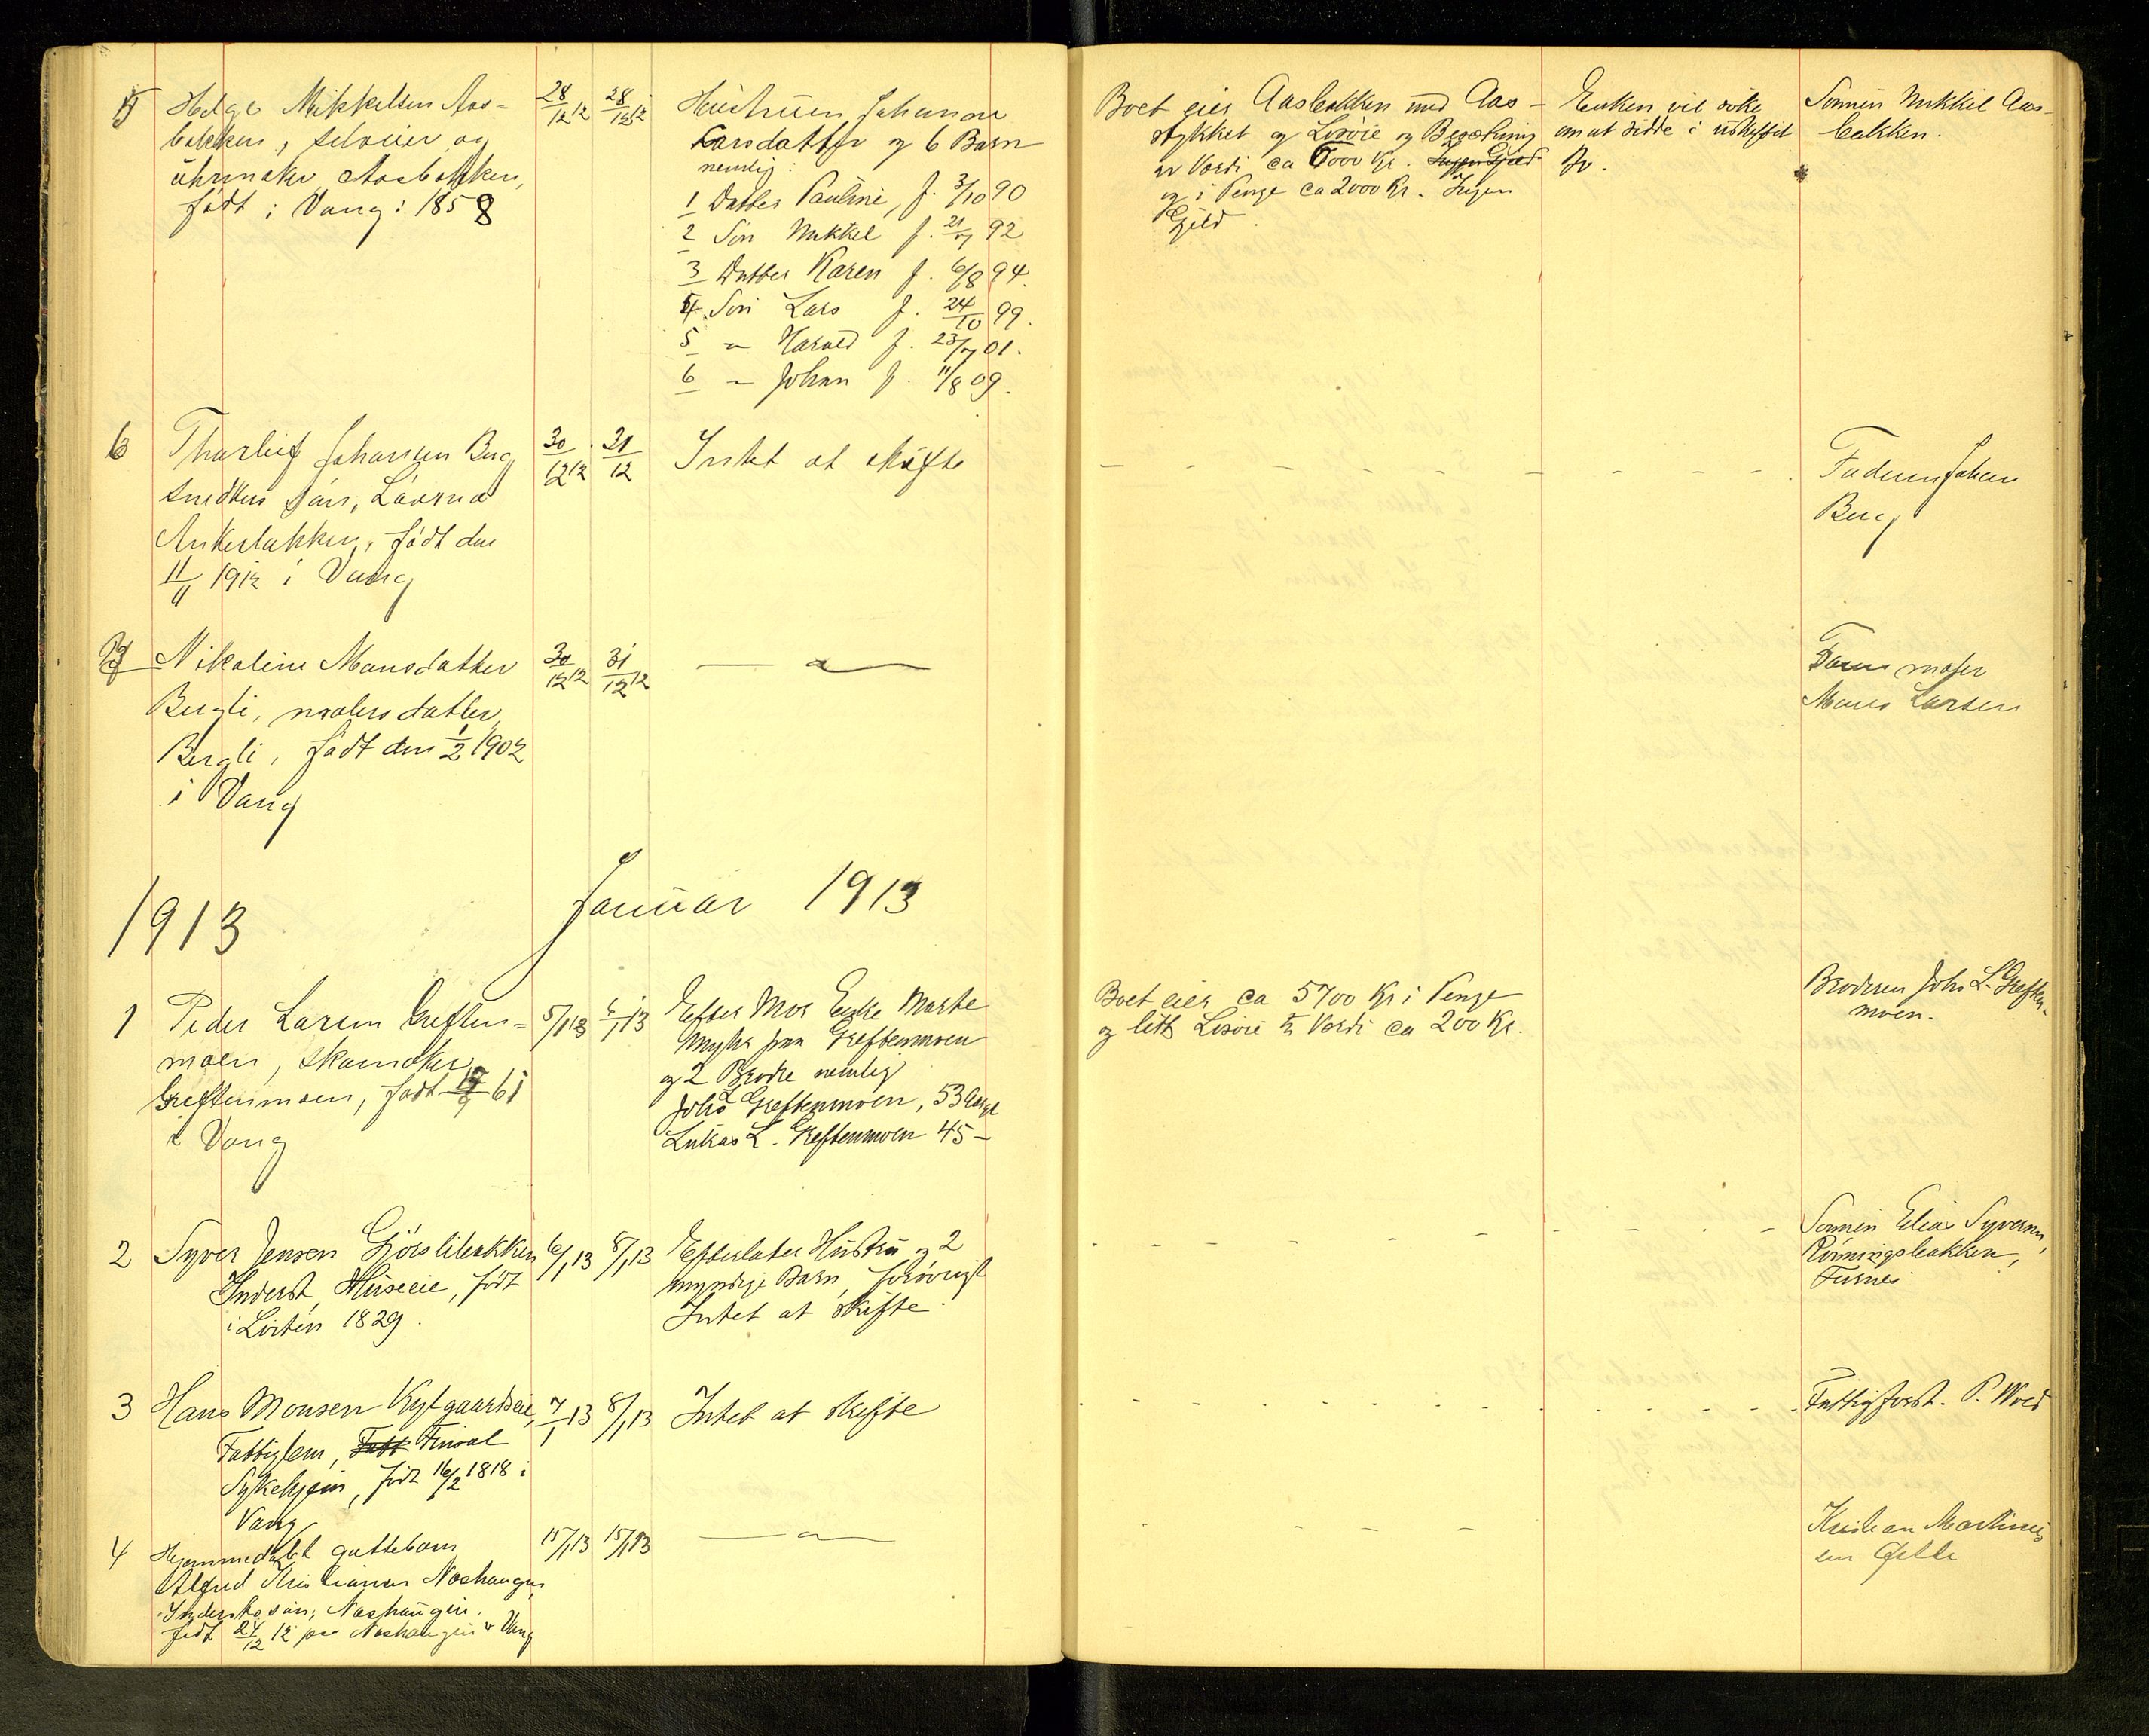 5 Helge Mikkelsen Aas-
bakken, selveier og
uhrmaker Aasbakken,
født i Vang i 1858
28/12 12 28/12 12
Hustruen Johanne
Larsdatter og 6 Barn
nemlig:
1 Datter Pauline, f. 3/10 90
2 Søn Mikkel f. 21/7 92
3 Datter Karen f. 6/8 94.
4 Søn Lars f. 24/10 99.
5 " Harald f. 23/7 01.
6 " Johan f. 11/8 09.
Boet eier Aasbakken med Aas-
stykket og Løsøre og Besætning
av Værdi ca 000 Kr. Ingen Gjæld
og i Penge ca 2000 Kr. Ingen
Gjeld.
Enken vil søke
om at sidde i uskiftet
Bo.
Sønnen Mikkel Aas-
bakken.
6 Thorleif Johansen Berg
snedkers søn,
Ankerbakken, født den
11/11 1912 i Vang
30/12 12 31/12
Intet at skifte
Faderen Johan
Berg
7 Nikoline Monsdatter
Bergli, malersdatter,
Bergli, født den 1/2 1902
i Vang
30/12 12 31/12 12
— " —
maler
Mons Larsen
1913
Januar 1913
1 Peder Larsen Greften-
moen, skomaker
Greftenmoen, født 19/9 61
i Vang
5/1 13 6/1 13
Efter Mor Enke Marte
Greftenmoen
og 2 Brødre nemlig
Johs L. Greftenmoen, 53 Aar gl
Lukas L. Greftenmoen 45 —
Boet eier ca 5700 Kr i Penge
og litt Løsøre til Værdi ca 200 Kr.
Broderen Johs L. Greften-
moen.
2 Syver Jensen Gjørslibakken
Inderst, Huseeie, født
i Løiten 1829.
6/1 13 8/1 13
Efterlater Hustru og 2
myndige Barn, forøvrigt
Intet at skifte.
Sønnen Elias Syversen,
Rønningsbakken,
Furnes
3 Hans Monsen Kylgaardseie,
Fattiglem, Fatt Finsal
Sykehjem, født 16/2 1818 i
Vang
7/1 13 8/1 13
Intet at skifte
Fattigforst. P. Wold
4 Hjemmedøbt guttebarn
Alfred Kristiansen Nashaugen,
Inderstsøn, Nashaugen.
født 24/12 12 paa Nashaugen i Vang
15/1 13 15/1 13
— " —
Kristian Martinius-
sen Gette